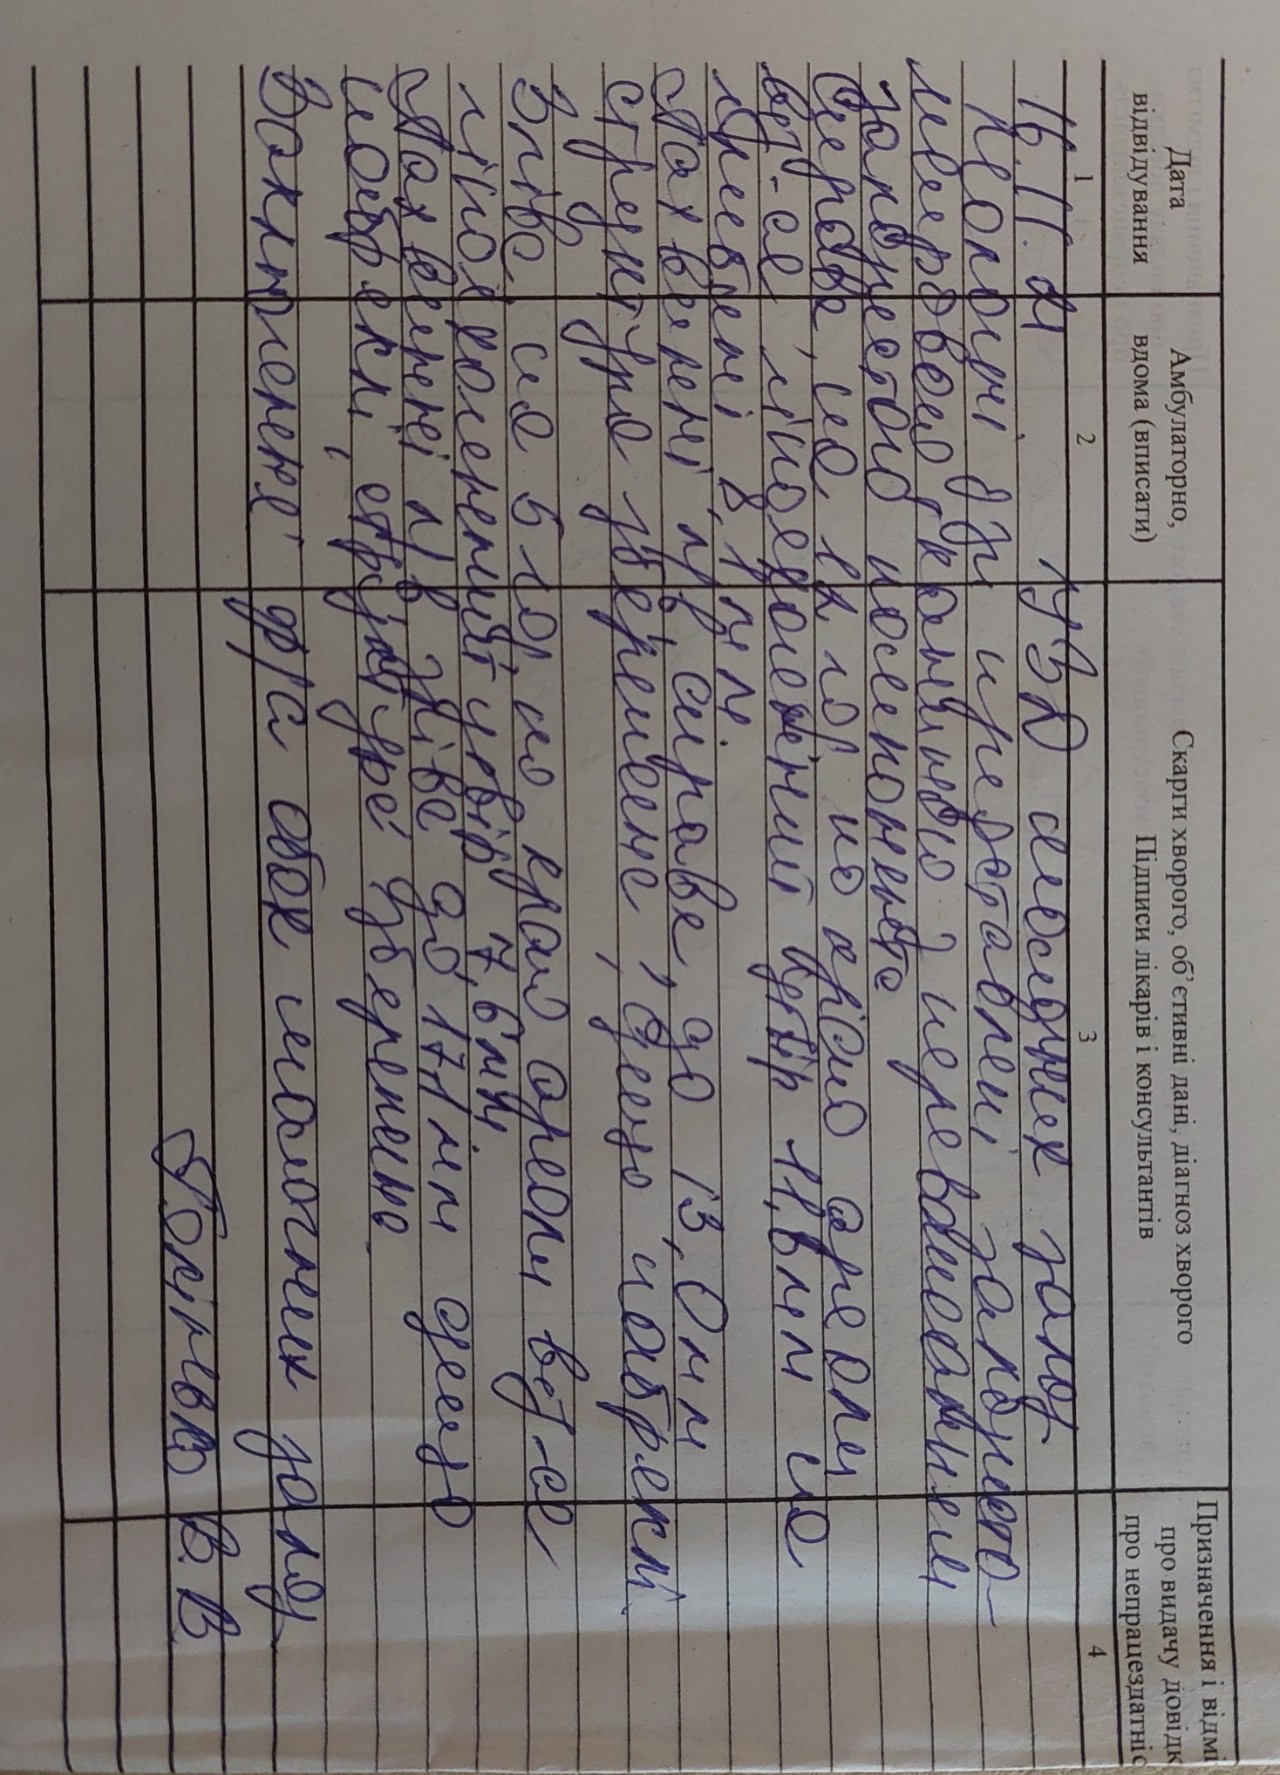 Дата
відвідування
Амбулаторно,
вдома (вписати)
Скарги хворого, об'єктивні дані, діагноз хворого
Підписи лікарів і консультантів
Призначення і відмі
про видачу довідк
про непрацездатніс
1 2 3 4
16.11.21 УЗД молочних залоз
Молочні з-зи представлені залозисто-
жировою тканиною з переважанням
залозистого компоненту
Справа, на 12 год по краю ареоли
візт-ся гіпоехогенний утвір 11,8 мм на
8,1 мм.
пахвенні л/в справа до 13,0 мм
структура збережена, дещо набряклі.
Зліва, на 5 год по краю ареоли візт-ся
гіпоехогенний утвір 7,6 мм.
Пахвенні л/в зліва до 17,1 мм дещо
набряклі, структура збережена
Заключення: ф/а обох молочних залоз
В.В.